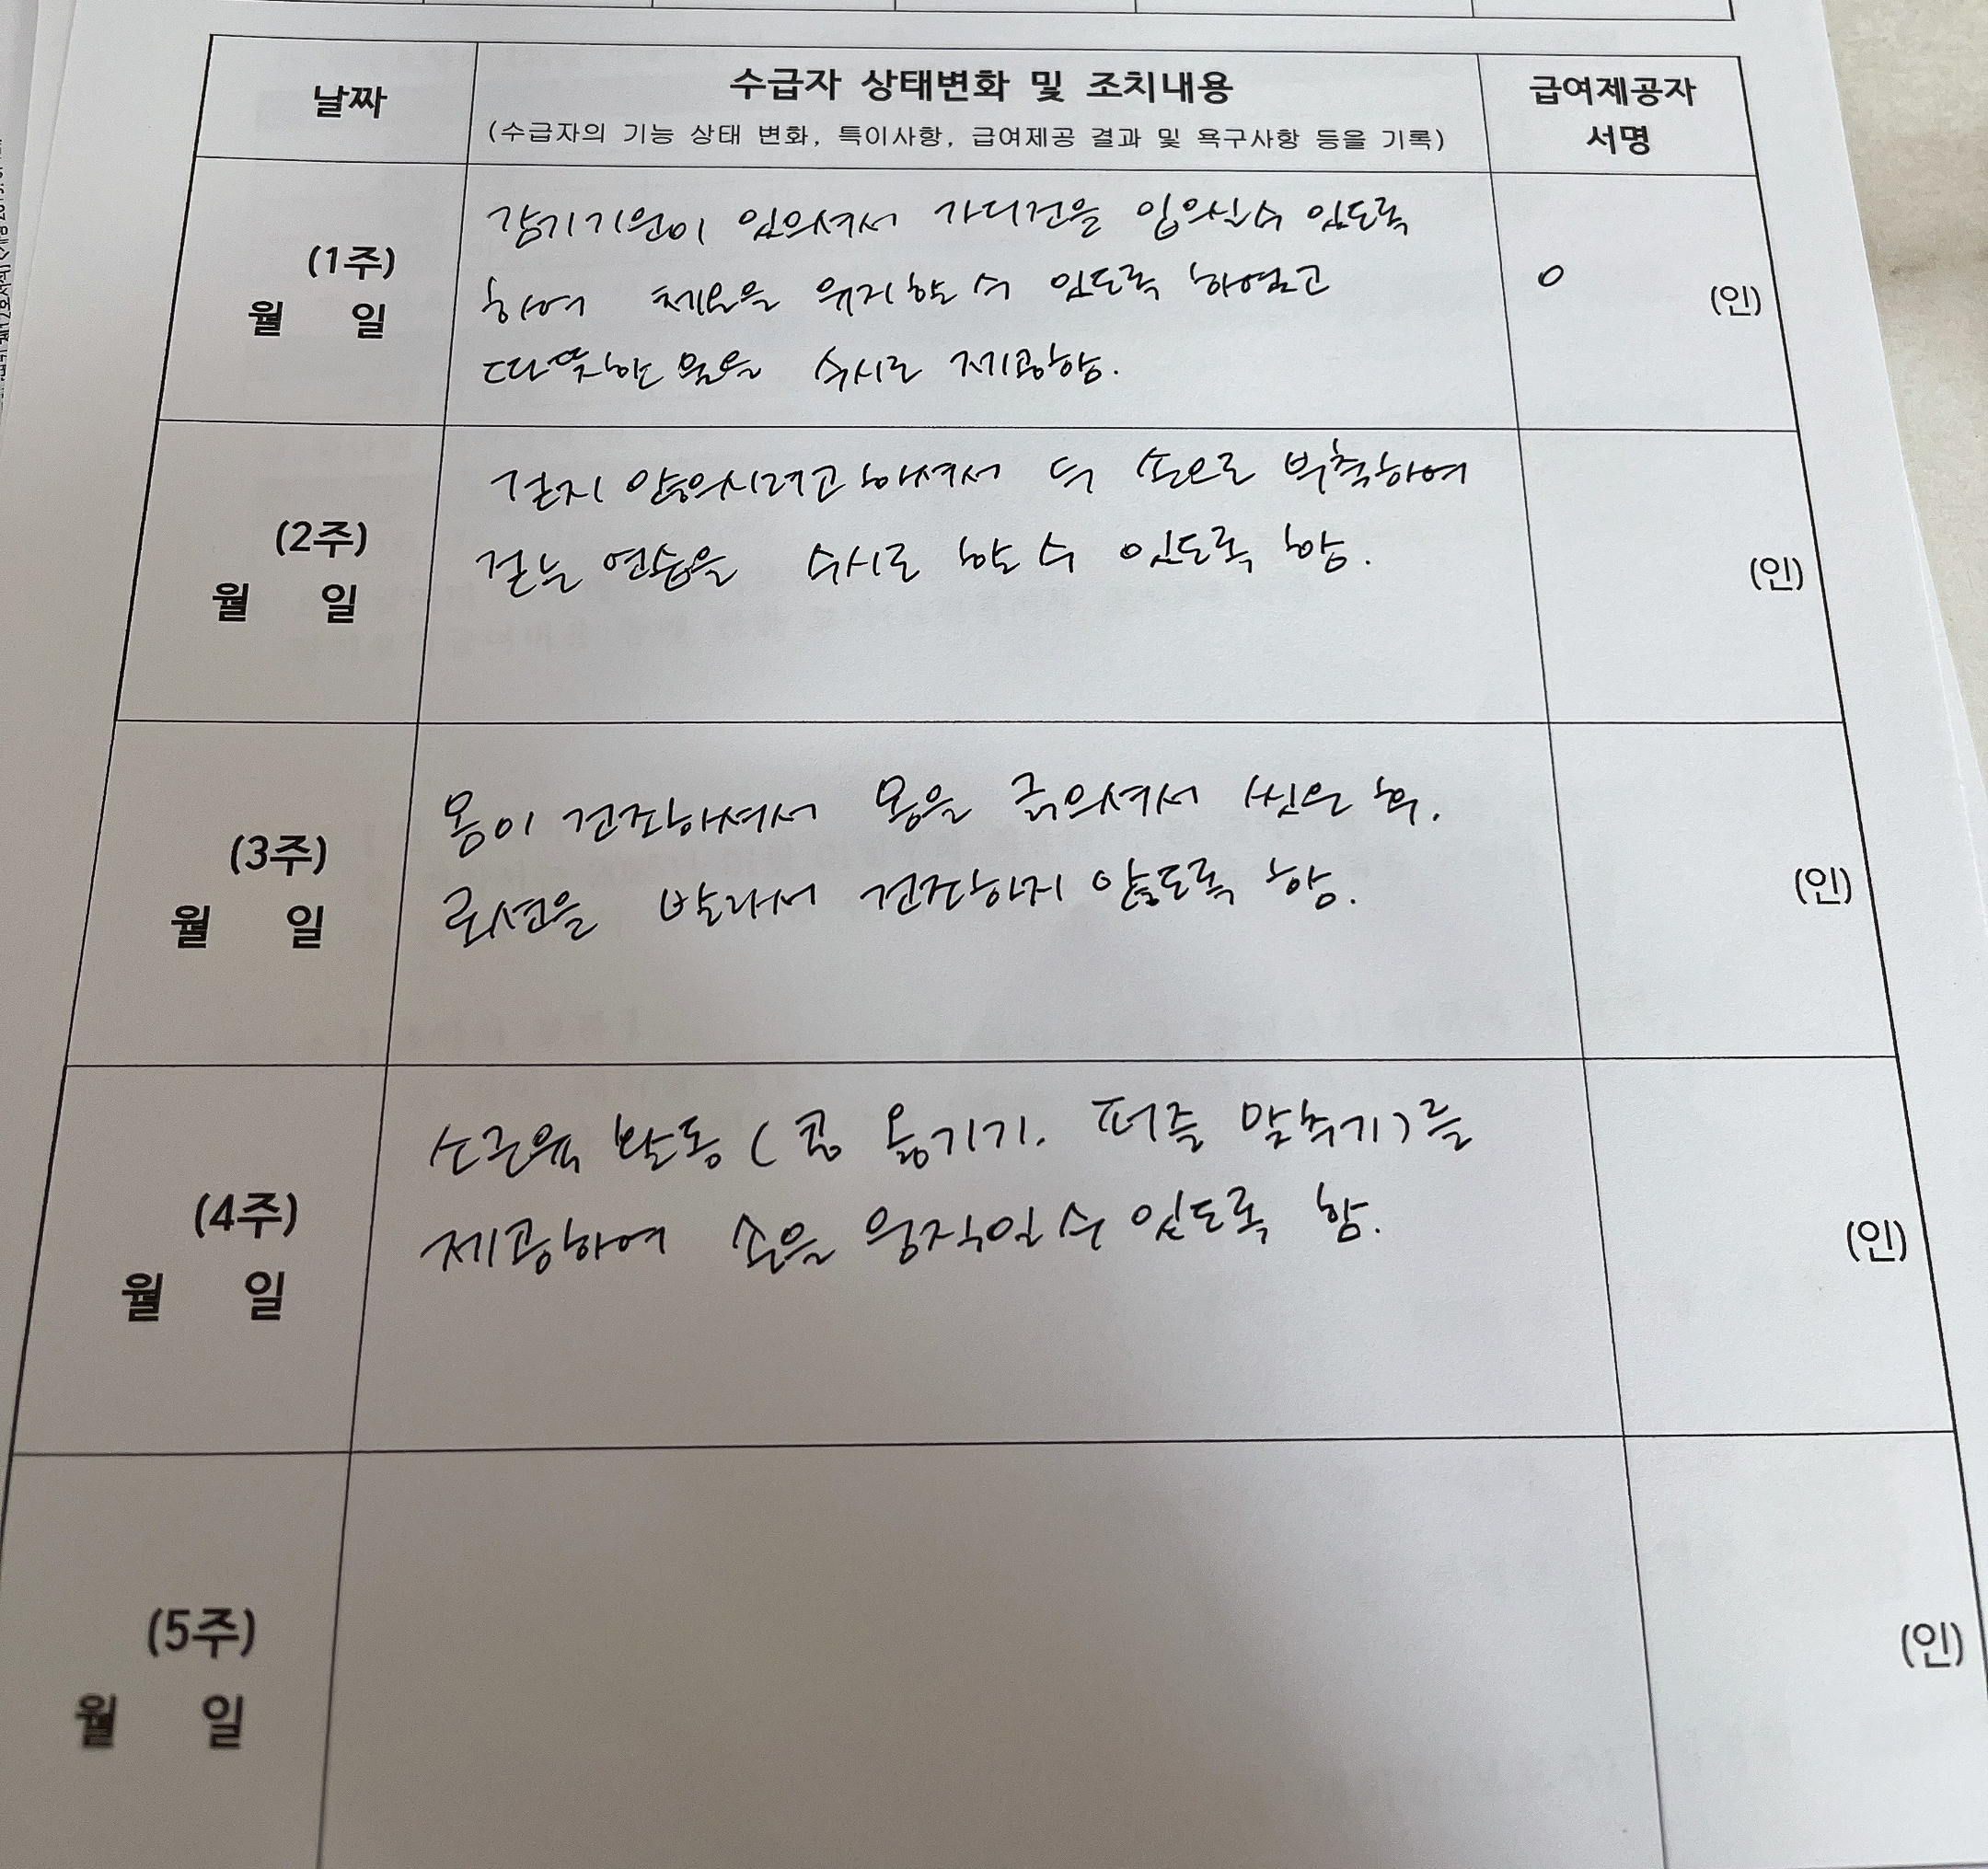 날짜
수급자 상태변화 및 조치내용
(수급자의 기능 상태 변화, 특이사항, 급여제공 결과 및 욕구사항 등을 기록)
급여제공자
서명
(1주)
월 일
감기기운이 있으셔서 가디건을 입으실수 있도록
하여 체온을 유지할 수 있도록 하였고
따뜻한 물을 수시로 제공함.
O
(인)
(2주)
월 일
걷지 않으시려고 하셔서 두 손으로 부축하여
걷는 연습을 수시로 할 수 있도록 함.
(인)
(3주)
월 일
몸이 건조하셔서 몸을 긁으셔서 씻은 후,
로션을 발라서 건조하지 않도록 함.
(인)
(4주)
월 일
소근육 발동 (콩 옮기기, 퍼즐 맞추기)를
제공하여 손을 움직일 수 있도록 함.
(인)
(5주)
월 일
(인)